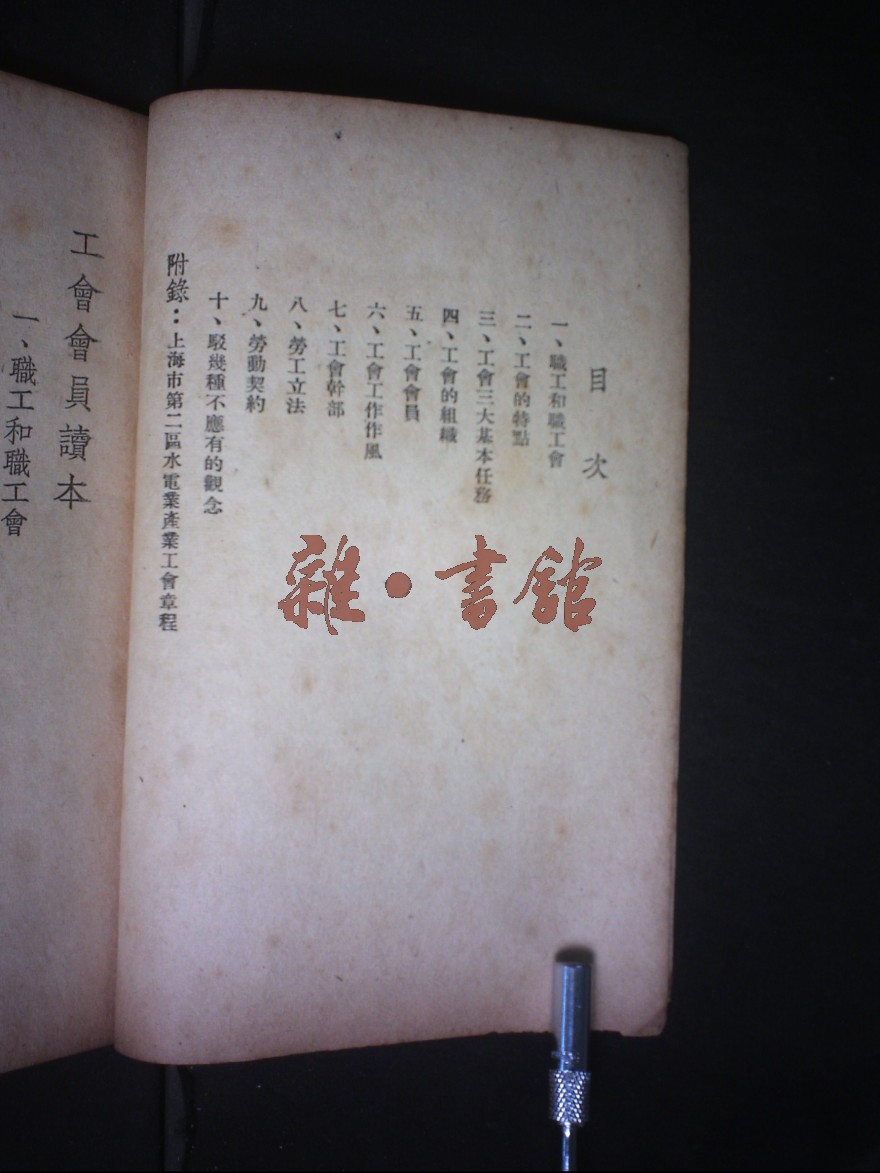 目次
一、職工和職工會
二、工會的特點
三、工會三大基本任務
四、工會的組織
五、工會會員
六、工會工作作風
七、工會幹部
八、勞工立法
九、勞動契約
十、駁幾種不應有的觀念
附錄：上海市第二區水電業產業工會章程
雜·書館
工會會員讀本
一、職工和職工會